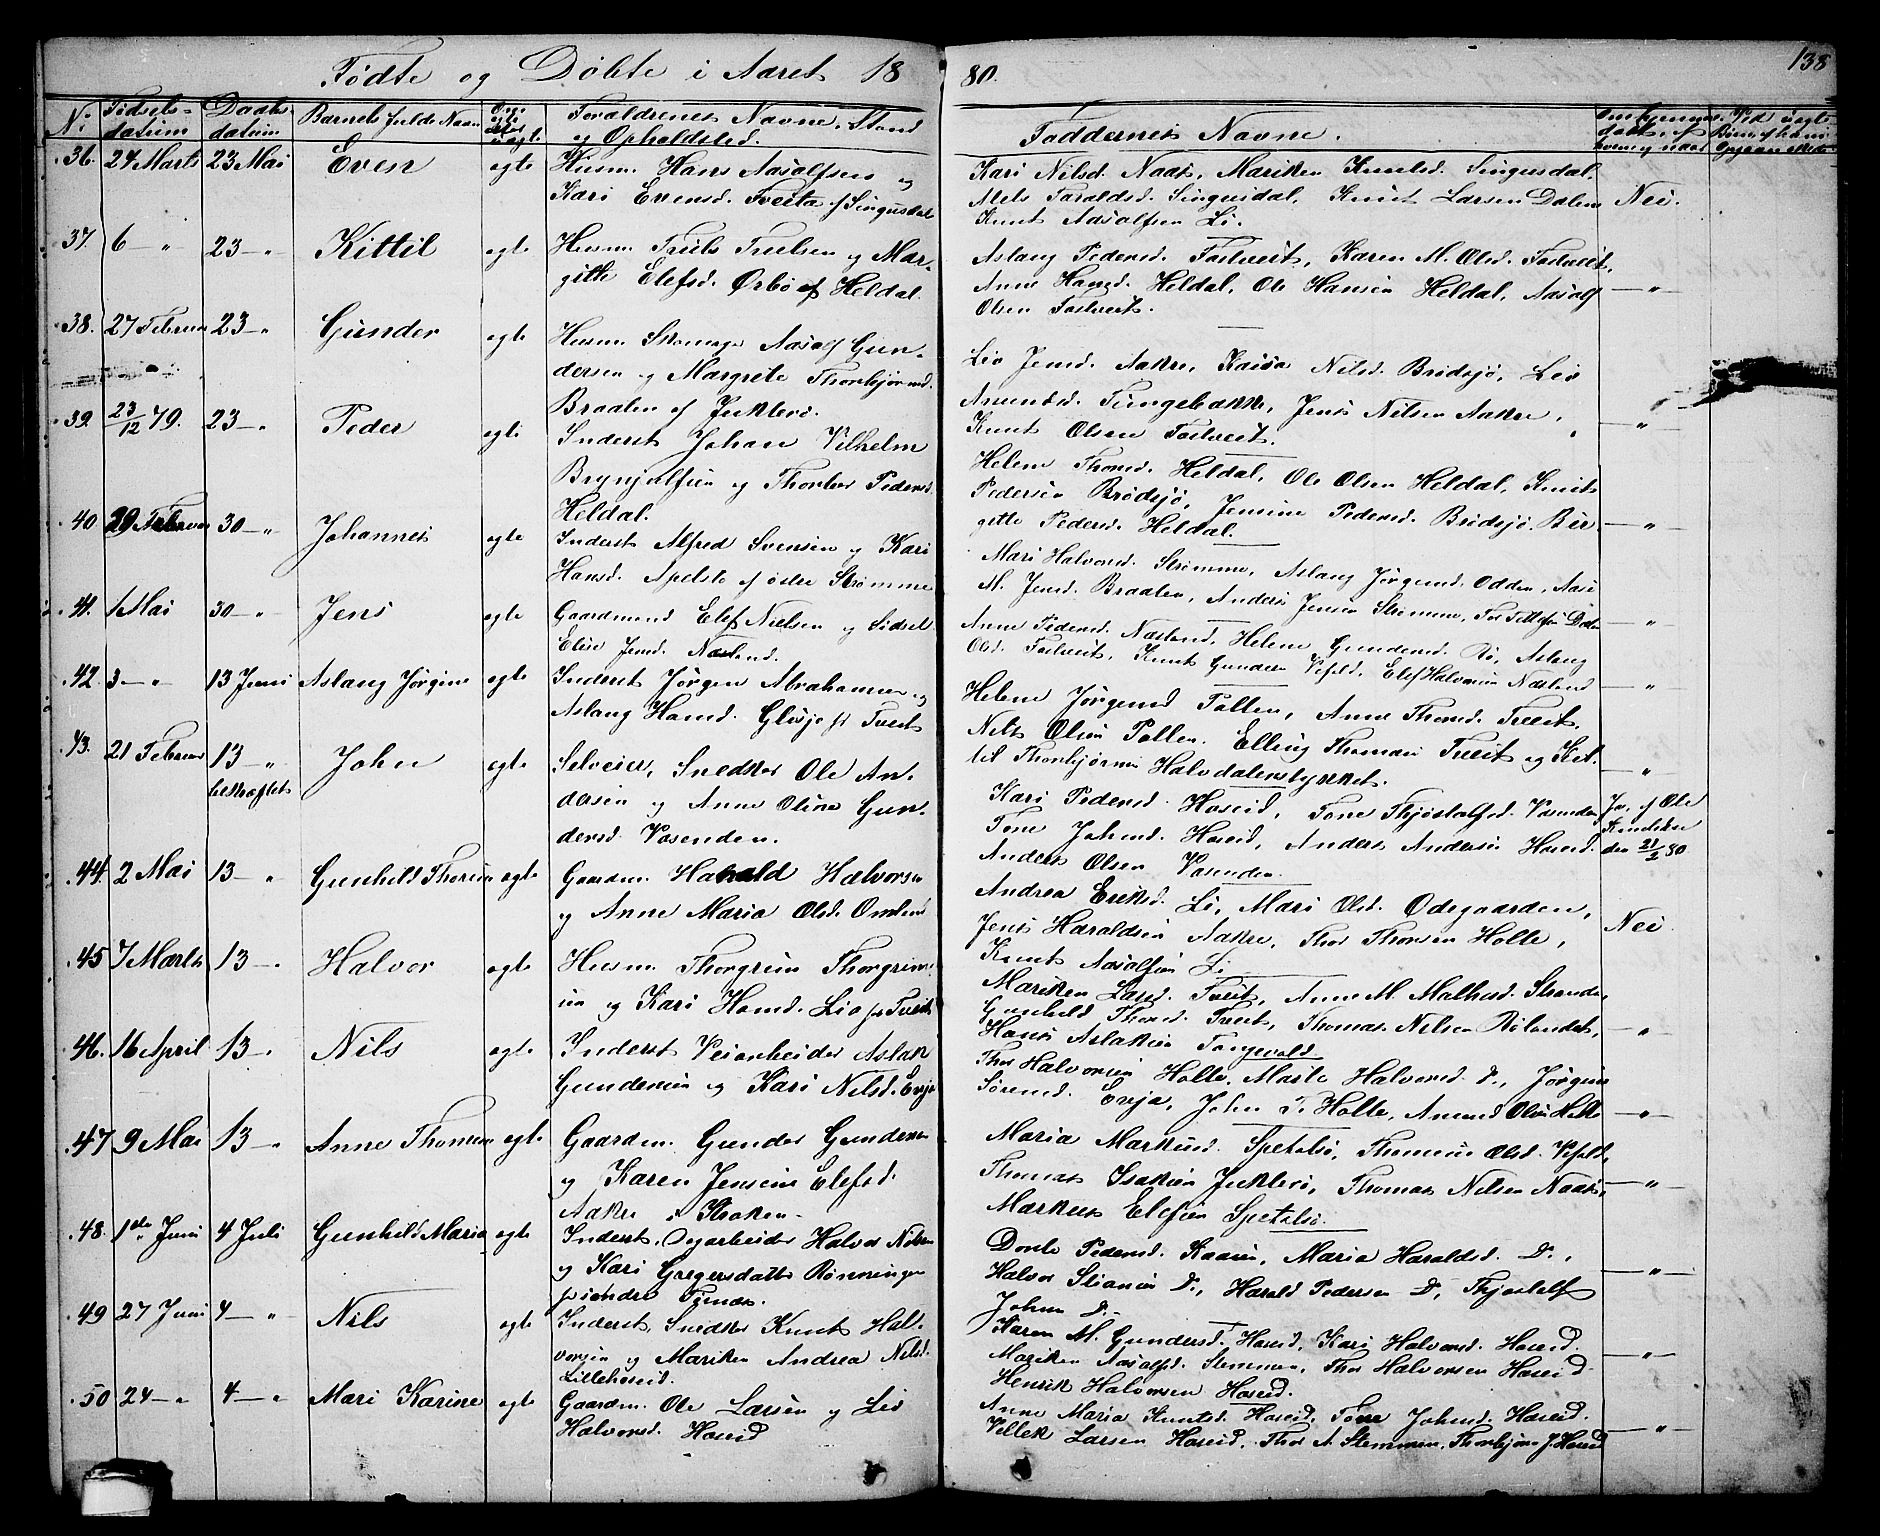 Födte og Döbte i Aaret 18
80.
138
No
Födsels-
datum
Daabs-
datum
Barnets fulde Navn
Om
egte
eller
uegte
Foraldrenes Navne, Stand
og Opholdsted.
Faddernes Navne.
36. 24 Marts 23 Mai Even egte
Husm. Hans Aasalfsen og
Kari Evensd. Tveita pf Singusdal
Kari Nilsd. Naas, Mariken Knutsd. Singusdal,
Nils Taraldsd. Singusdal, Knut Larsen Dalen
Knut Aasalfsen Li.
Nei.
37. 6 — " 23 — " Kittil egte
Husm. Truls Trulsen og Mar-
gitte Elefsd. Örbö pf Heldal.
Aslaug Pedersd. Fostveit, Karen M. Olsd. Fostveit,
Anne Hansd. Heldal, Ole Hansen Heldal, Aasalf
Olsen Fostveit.
— " —
38. 27 Februar 23 — " Gunder egte
Husm. Skomager Aasalf Gun-
dersen og Margrete Thorbjörnsd.
Braaten pf Juklerö.
Liv Jensd. Aakre, Kaisa Nilsd. Brödsjö, Liv
Amundsd. Tungebakke, Jens Nilsen Aakre,
Knut Olsen Fostveit.
— " —
39. 23/12 79. 23 — " Peder egte
Inderst Johan Vilhelm
Brynjulfsen og Thorbor Pedersd.
Heldal.
Helene Thorsd. Heldal, Ole Olsen Heldal, Knut
Pedersen Brödsjö, Jensine Pedersd. Brödsjö, Bir-
gitte Pedersd. Heldal.
— " —
40 29 Februar 30 — " Johannes egte
Inderst Alfred Svensen og Kari
Hansd. Apelstö pf östre Strömme
Mari Halvorsd. Strömme, Aslaug Jörgensd. Odden, Aase
M. Jensd. Braaten, Anders Jensen Strömme, Tor Tellefsen Dalen
— " —
41. 1 Mai 30 — " Jens egte
Gaardmand Elef Nielsen og Sidsel
Elise Jensd. Næsland.
Anne Pedersd. Næsland, Helene Gundersd. Rö, Aslaug
Olsd. Fostveit, Knut Gundersen Vefald, Elef Halvorsen Næsland
— " —
42. 3 — " 13 Juni Aslaug Jörgine egte
Inderst Jörgen Abrahamsen og
Aslaug Hansd. Glösje pf Tveit
Helene Jörgensd Pollen, Anne Thorsd. Tveit,
Nils Olsen Pollen, Elling Thomasen Tveit og Kit-
til Thorbjörnsen Halvdalenstykket.
— " —
43. 21 Februar 13 — " John egte
bekræftet
Selveier, Snedker Ole An-
dersen og Anne Oline Gun-
dersd. Vasenden.
Kari Pedersd. Hoseid, Tone Thjöstolfsd. Vasenden,
Tone Johnsd. Hoseid, Anders Andersen Hoseid.
Anders Olsen Vasenden.
Ja, af Ole
Knudsen
den 21/2 80
44. 2 Mai 13 — " Gunhild Thorine egte
Gaardm. Harald Halvorsen
og Anne Maria Olsd. Omland
Andrea Eriksd. Li, Mari Olsd. Ödegaarden,
Jens Haraldsen Aakre, Thor Thorsen Holte,
Knut Aasalfsen Li.
Nei.
45 7 Marts 13 — " Halvor egte
Husm. Thorgrim Thorgrim-
sen og Kari Hansd. Lia pf Tveit
Mariken Larsd. Tveit, Anne M. Mathisd. Strande,
Gunhild Thorsd. Tveit, Thomas Nilsen Rölandet,
Hans Aslaksen Tangevald.
— " —
46. 16 April 13 — " Nils egte
Inderst Veiarbeider Aslak
Gundersen og Kari Nilsd. Evja
Thor Halvorsen Holte, Marte Halvorsd. Do, Jörgen
Sörensd. Evja, John T. Holte, Amund Olsen Holte
— " —
47 9 Mai 13 — " Anne Thomine egte
Gaardm. Gunder Gundersen
og Karen Jensine Elefsd.
Aakre i Kroken.
Maria Markusd. Spetalsö, Thomine Olsd. Vefald,
Thomas Isaksen Juklerö, Thomas Nilsen Naas,
Markus Elefsen Spetalsö.
— " —
48. 1ste Juni 4 Juli Gunhild Maria egte
Inderst, Dagarbeider Halvor Nilsen
og Kari Gregersdatter Rönningen
pf indre Tynæs.
Dorte Pedersd. Kaasen, Maria Haraldsd. Do.,
Halvor Stiansen Do., Harald Pedersen Do, Thjostolf
Johns. Do.
— " —
49 27 Juni 4 — " Nils egte
Inderst, Snedker Knut Hal-
vorsen og Mariken Andrea Nilsd.
Lillehoseid.
Karen M. Gundersd. Hoseid, Kari Halvorsd. Hoseid.
Mariken Aasalfsd. Stemmen, Thor Halvorsen Hoseid.
Henrik Halvorsen Hoseid.
— " —
50 24 — " 4 — " Mari Karine egte
Gaardm. Ole Larsen og Liv
Halvorsd. Hoseid
Anne Maria Knutsd. Hoseid, Tone Johnsd. Hoseid.
Vellek Larsen Hoseid, Thor A. Stemmen, Thorbjörn J. Hoseid
— " —